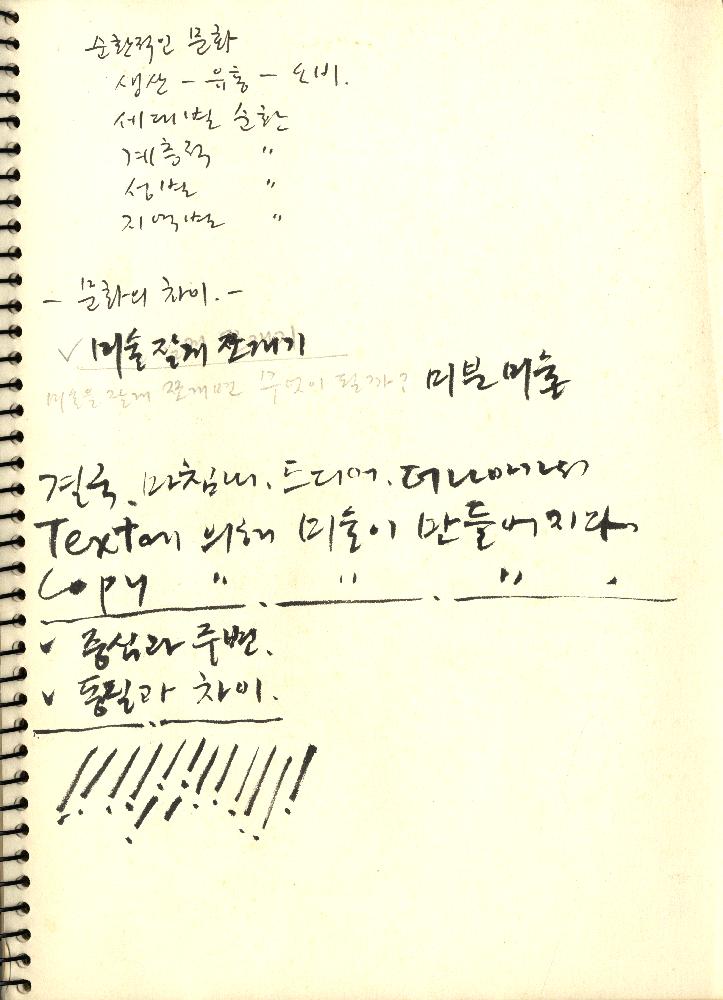 순환적인 문화
생산 - 유통 - 소비.
세대별 순환
계층적 〃
성별 〃
지역별 〃
- 문화의 차이. -
✓ 미술 잘게 쪼개기
미술을 잘게 쪼개면 무엇이 될까? 미분 미술
결국, 마침내, 드디어,
Text에 의해 미술이 만들어지다.
Copy 〃 〃 〃 .
✓ 중심과 주변.
✓ 통일과 차이.
!!!!!!!!!!!!!